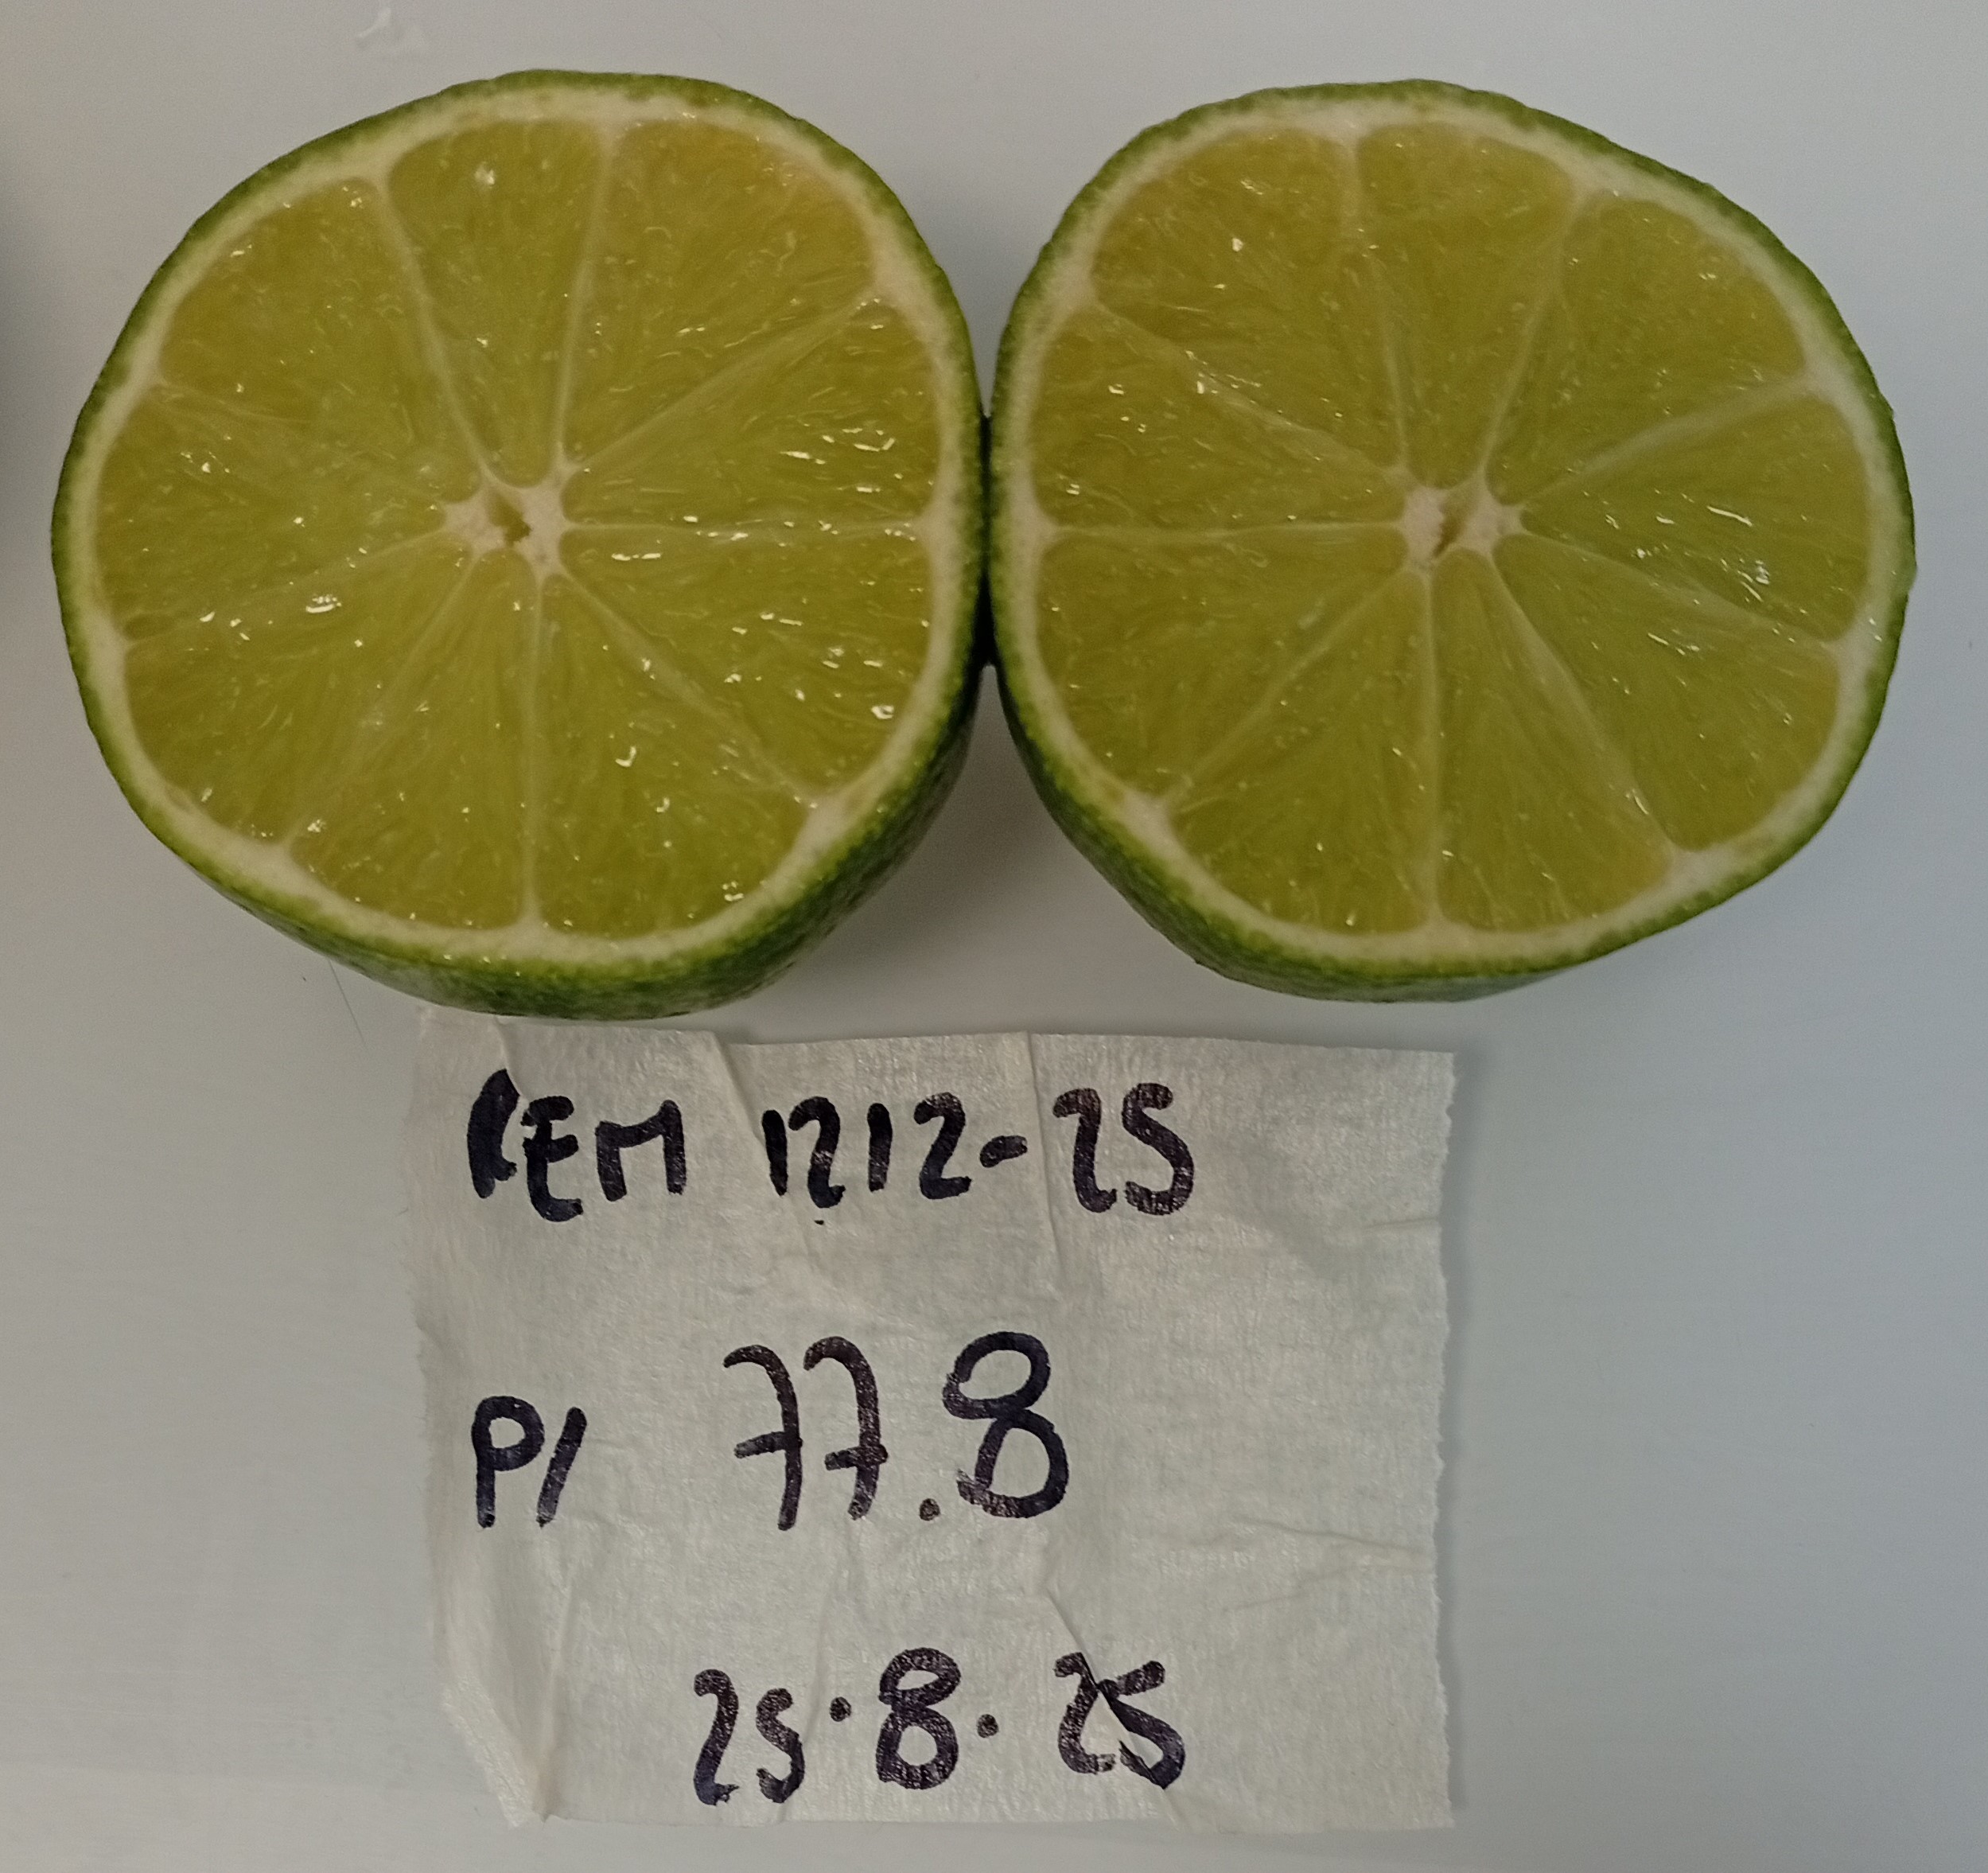 REM 1212-25
P/ 77.8
25.8.25